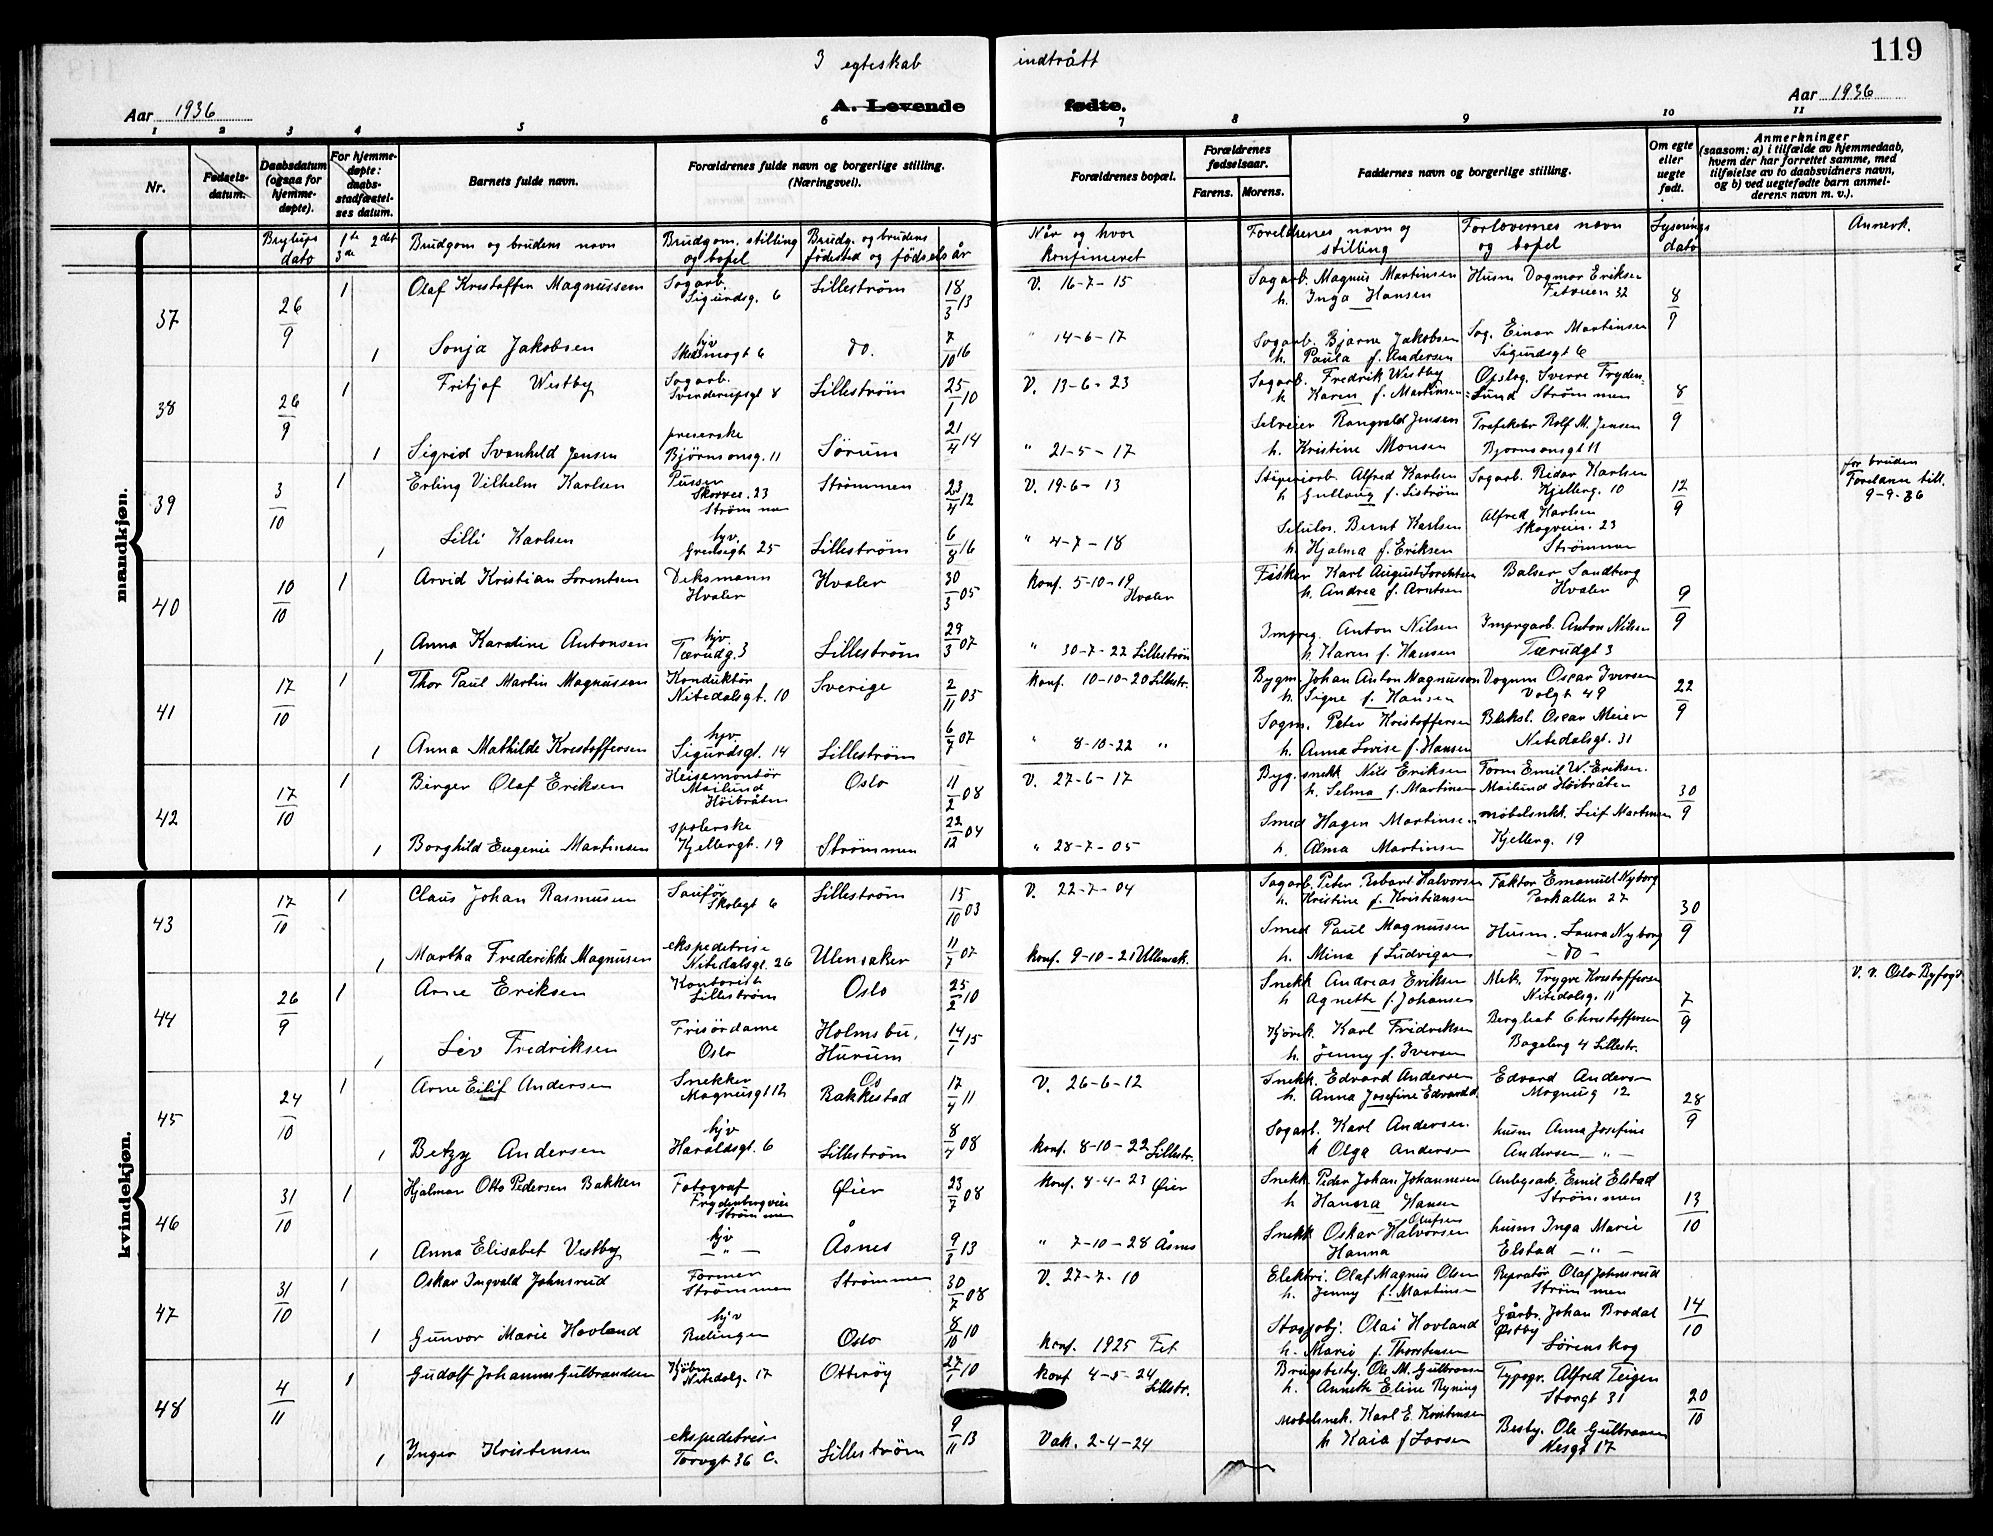 119
3 egteskab indtrått
Aar 1936 A. Levende fødte. Aar 1936
1 2 3 4 5 6 7 8 9 10 11
Nr.
Fødselsdatum.
Daabsdatum (ogsaa for hjemmedøpte).
For hjemmedøpte: daabsstadfæstelses datum.
Barnets fulde navn.
Forældrenes fulde navn og borgerlige stilling. (Næringsvei).
Forældrenes bopæl.
Forældrenes fødselsaar.
Farens. Morens.
Faddernes navn og borgerlige stilling.
Om egte eller uegte født.
Anmerkninger
(saasom: a) i tilfælde av hjemmedaab,
hvem der har forrettet samme, med
tilføielse av to daabsvidners navn,
og b) ved uegtefødte barn anmelderens navn m. v.).
Bryllups dato
1te 2det 3de
Brudgom og brudens navn
Brudgom. stilling og bopel
Brudg. og brudens fødested og fødselsår
Når og hvor konfirmeret
Foreldrenes navn og stilling
Forlovernes navn og bopel
Lysnings dato
Anmerk.
mandkjøn.
37 26/9 1 Olaf Kristoffen Magnussen Sagarb. Sigurdsg. 6 Lillestrøm 18/3 13 V. 16-7-15 Sagarb. Magnus Martinsen h. Inga Hansen Husm Dagmar Eriksen Fetveien 32 8/9
1 Sonja Jakobsen hjv Skedsmogt 6 do. 7/10 16 " 14-6-17 Sagarb. Bjarne Jakobsen h. Paula f. Andersen Sag. Einar Martinsen Sigurdsgt 6
38 26/9 1 Fritjof Westby Sagarb. Svenderupsgt 8 Lillestrøm 25/1 10 V. 13-6-23 Sagarb. Fredrik Westby h Karen f. Martinsen Opslag. Sverre Frydenlund Strømmen 8/9
1 Sigrid Svanhild Jensen preserske Bjørnsonsg. 11 Sørum 21/4 14 " 21-5-17 Selveier Rangvald Jensen h. Kristine Monsen Trafekeler Rolf M. Jensen Bjørnsonsgt 11
39 3/10 1 Erling Vilhelm Karlsen Pusser Skovvei. 23 Strømmen Strømmen 23/4 12 V. 19-6-13 Støperiarb. Alfred Karlsen h Gullaug f. Listrøm Sagarb. Ridar Karlsen Kjellerg. 10 12/9 for bruden Foreldrene till. 9-9-36
1 Lilli Karlsen hjv. Grensegt 25 Lillestrøm 6/8 16 " 4-7-18 Selulos. Bernt Karlsen h. Hjalma f. Eriksen Alfred Karlsen Skogvein. 23 Strømmen
40 10/10 1 Arvid Kristian Lorentsen Deksmann Hvaler Hvaler 30/3 05 konf. 5-10-19 Hvaler Fisker Karl August Lorentsen h. Andrea f. Arntsen Balser Sandberg Hvaler 9/9
1 Anna Karoline Antonsen hjv. Tærudg. 3 Lillestrøm 29/3 07 " 30-7-22 Lillestrøm Impreg. Anton Nilsen h. Karen f. Hansen Imprgarb. Anton Nilsen Tærudgt 3
41 17/10 1 Thor Paul Martin Magnussen Konduktør Nitedalsgt. 10 Sverige 2/11 05 konf. 10-10-20 Lillestr. Bygm Johan Anton Magnusson h. Signe f. Hansen Vognm Oscar Iversen Volgt 49 22/9
1 Anna Mathilde Kristoffersen hjv. Sigurdsgt. 14 Lillestrøm 6/7 07 " 8-10-22 " Sagm. Peter Kristoffersen h. Anna Lovise f. Hansen Bliksl. Oscar Meier Nitedalsgt. 31
42 17/10 1 Birger Olaf Eriksen Heisemontør Mailund Høibråten Oslo 11/2 08 V. 27-6-17 Byg. snekk Nils Eriksen h. Selma f. Martinsen Form Emil W. Eriksen. Mailund Høibråten 30/9
1 Borghild Eugenie Martinsen spolerske Kjellergt. 19 Strømmen 22/12 04 " 28-7-05 Smed Hagen Martinsen h. Alma Martinsen møbelsnkk. Leif Martinsen Kjellerg. 19
kvindekjøn.
43 17/10 1 Claus Johan Rasmusen Saufør Skolegt 6 Lillestrøm 15/10 03 V. 22-7-04 Sagarb. Peter Robart Halvorsen h. Kristine f. Kristiansen Faktor Emanuel Nyborg Parkallen 27 30/9
1 Martha Frederikke Magnusen ekspedetrise Nitedalsgt. 26 Ulensaker 11/7 07 konf. 9-10-21 Ullensak. Smed Paul Magnussen h. Mina f Ludvigsen Husm. Laura Nyborg - do -
44 26/9 1 Arne Eriksen Kontorist Lillestrøm Oslo 25/2 10 Snekk Andreas Eriksen h Agnette f. Johansen Mek. Trygve Kristoffersen Nitedalsg. 11 7/9 v. v. Oslo Byfogd
1 Liv Fredriksen Frisørdame Oslo Holmsbu, Hurum 14/1 15 Kjørek. Karl Fridriksen h. Jenny f. Iversen Bergliot Christoffersen Bageberg 4 Lillestr.
45 24/10 1 Arne Eilif Andersen Snekker Magnusgt 12 Os Rakkestad 17/4 11 V. 26-6-12 Snekk. Edvard Andersen h. Anna Josefine Edvardsd. Edvard Andersen Magnusg 12 28/9
1 Betzy Andersen hjv Haraldsgt. 6 Lillestrøm 8/7 08 konf. 8-10-22 Lillestr. Sagarb. Karl Andersen. h Olga Andersen husm Anna Josefine Andersen - " -
46 31/10 1 Hjalmar Otto Pedersen Bakken Fotograf Frydenbergveien Strømmen Øier 23/7 08 konf. 8-4-23 Øier Snekk. Peder Johan Johannesen h Hanna Hansen Anlegsarb. Emil Elstad Strømmen 13/10
1 Anna Elisabet Vestby hjv - " - Åsnes 9/3 13 " 7-10-28 Åsnes Snekk Oskar Halvorsen Olufsen Hanna husm Inga Marie Elstad - " -
47 31/10 1 Oskar Ingvald Johnsrud Former Strømmen Strømmen 30/7 08 V. 27-7-10 Elektri. Olaf Magnus Olsen h. Jenny f. Martinsen Repratør Olaf Johnsrud Strømmen 14/10
1 Gunvor Marie Hovland hjv Rælingen Oslo 8/10 10 konf. 1925 Fet Olai Hovland h. Marie f. Thorstensen Gårbr. Johan Brodal Østby Lørenskog
48 4/11 1 Gudolf Johannes Gulbrandsen Kjøbm Nitedalg. 17 Otterøy 27/1 10 konf 4-5-24 Lillestr. Brugsbesty. Ole M. Gulbransen h. Annette Eline Ryning Typogr. Alfred Teigen Storgt 31 20/10
1 Inger Kristensen ekspedetrise Torvgt 36 C. Lillestrøm 9/11 13 Vak. 2-4-24 Møbelsnek. Karl E. Kristensen h Kaia f Larsen Besty. Ole Gulbransen Nesgt 17